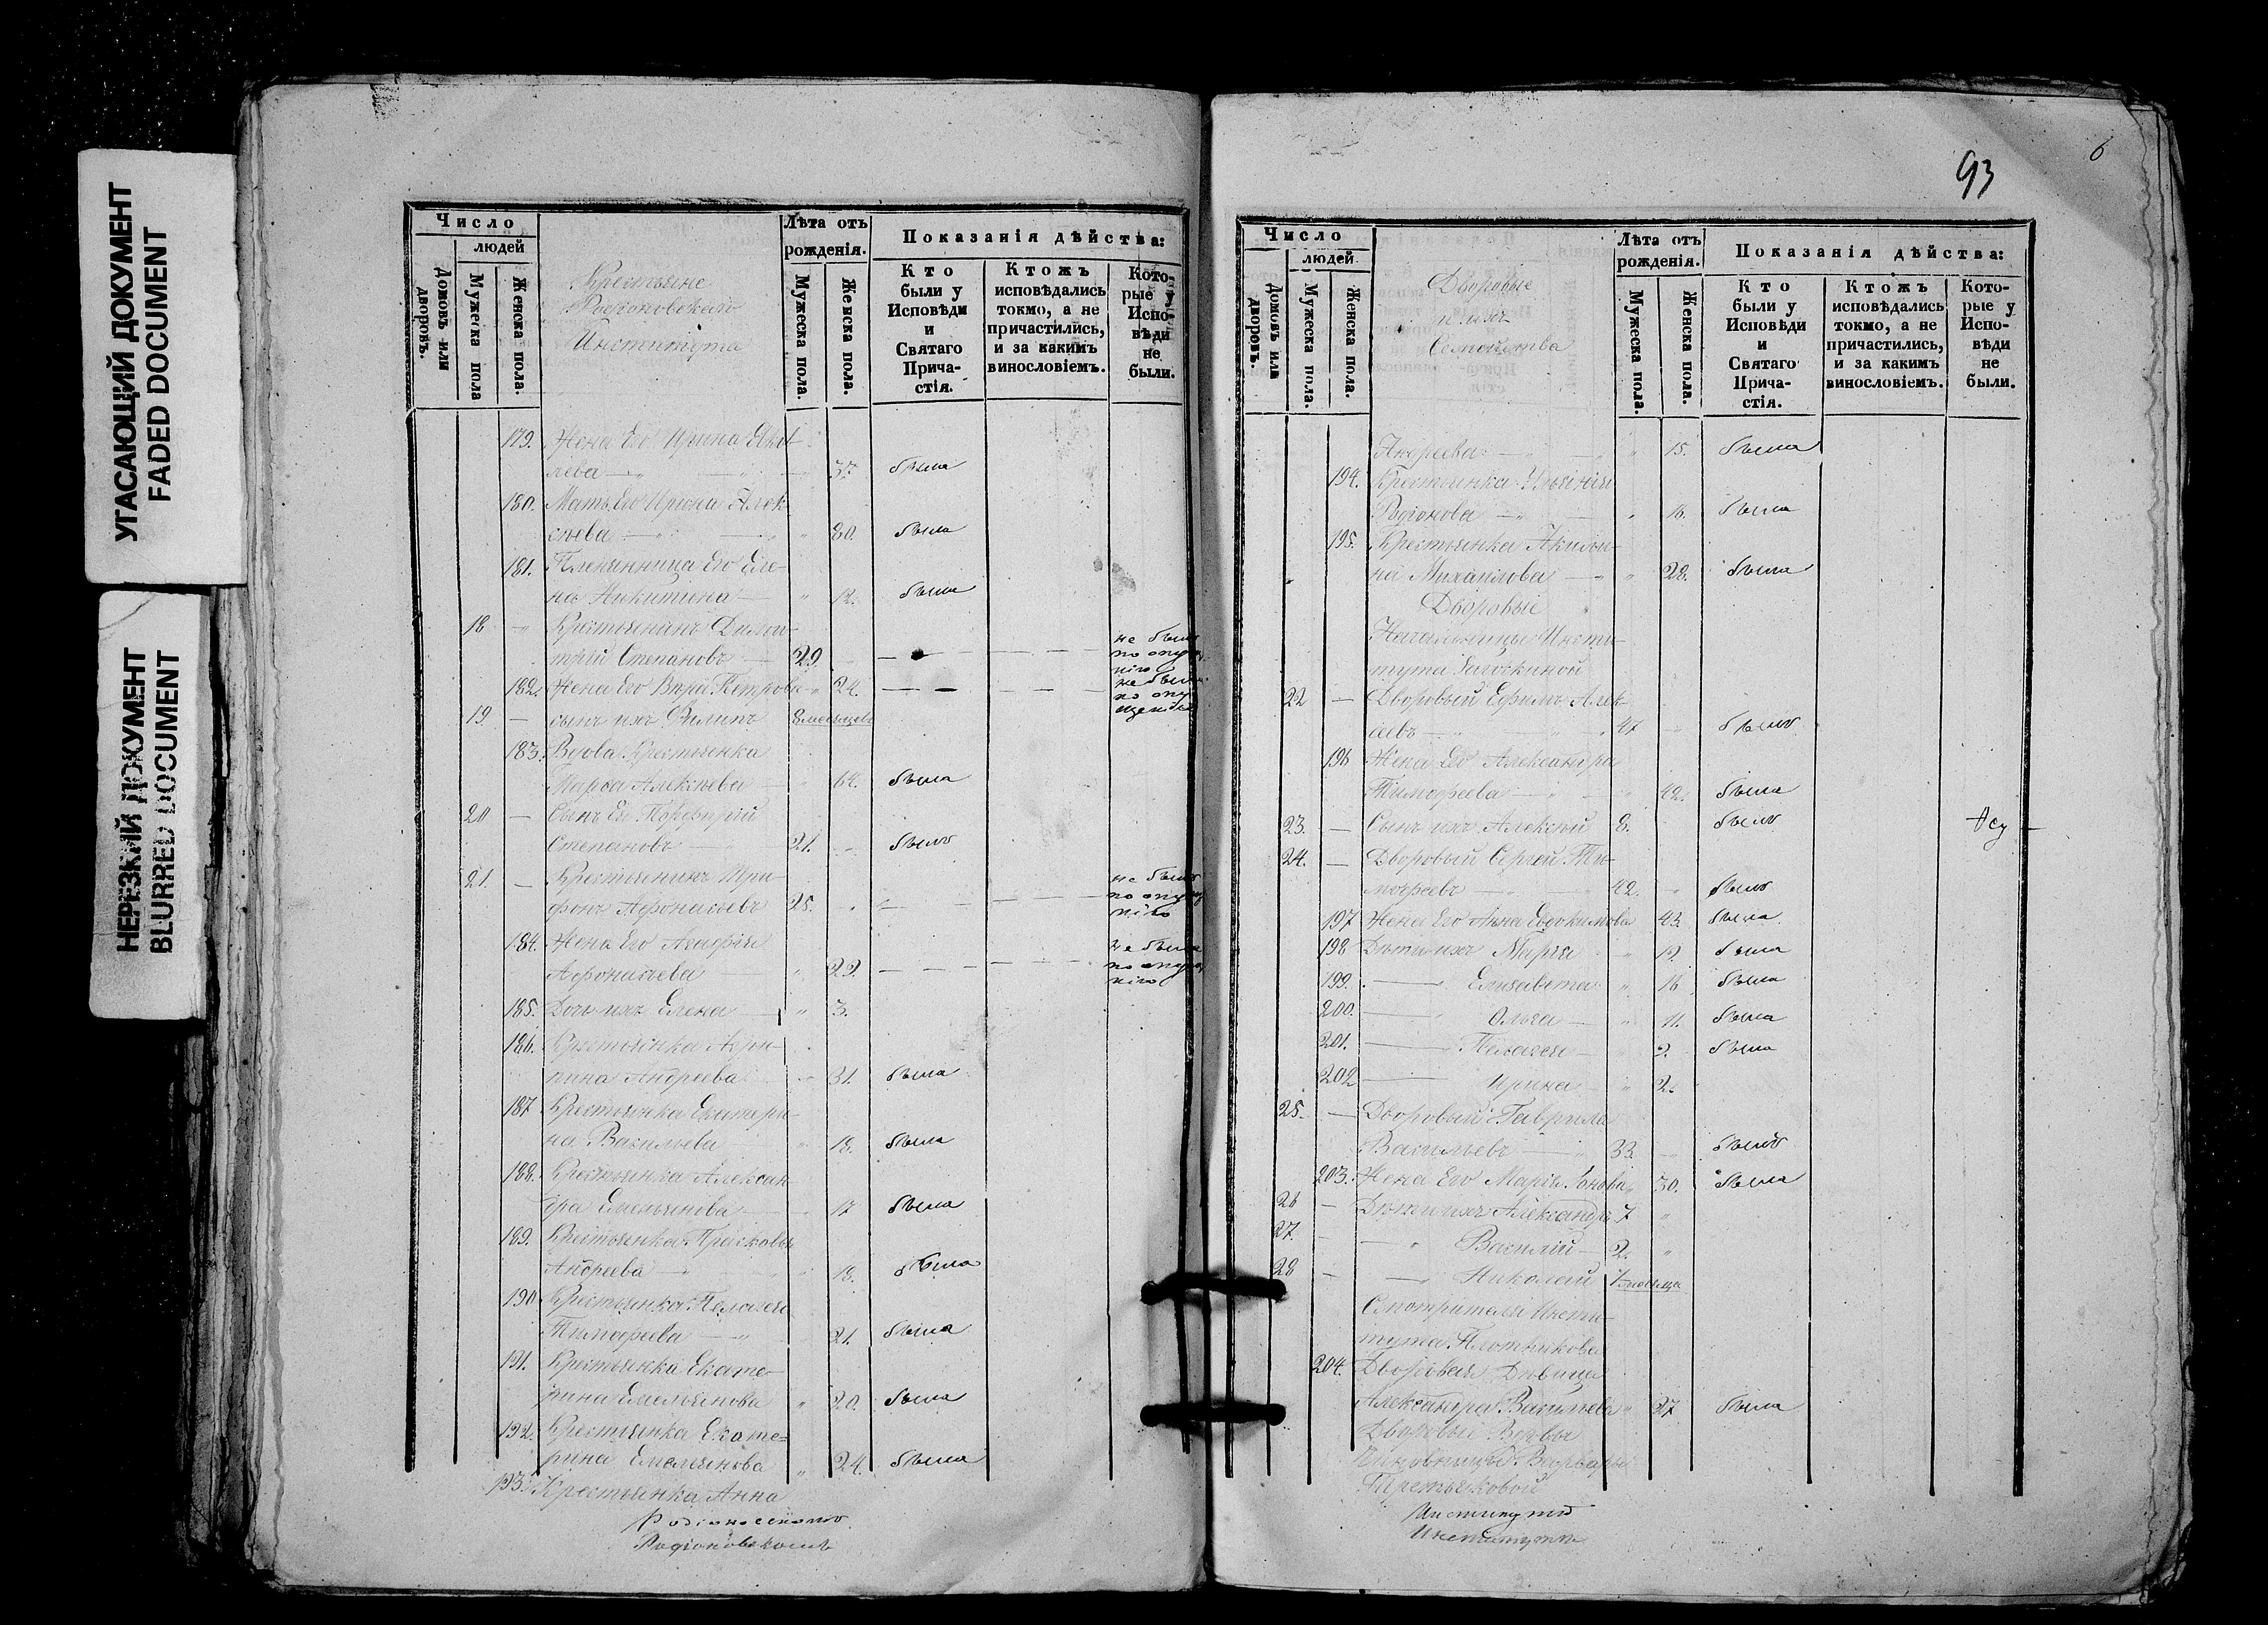 УГАСАЮЩИЙ ДОКУМЕНТ
FADED DOCUMENT
НЕРЕЗКИЙ ДОКУМЕНТ
BLURRED DOCUMENT
Число
людей
Домовъ или дворовъ.
Мужеска пола
Женска пола.
Крестьяне
Родіоновскаго
Института
Лѣта отъ рожденія.
Мужеска пола.
Женска пола.
Показанія дѣйства:
Кто были у Исповѣди и Святаго Прича-стія.
Ктожъ исповѣдались токмо, а не причастились, и за какимъ винословіемъ.
Кото-рые у Испо-вѣди не были.
179. Жена Его Ирина
лева 37. была
180. Мать Его Ирина Алек-
сѣева 80. была
181. Племянница Его Еле-
на Никитина 12. была
18 Крестьянинъ Дими-
трій Степановъ 29. не былъ по
182. Жена Его Вѣра Петрова 24. не была по
19 сынъ ихъ Филипъ 8 месяцевъ
183. Вдова Крестьянка
Марфа Алексѣева 64. была
20 Сынъ Ея Порфирій
Степановъ 21. былъ
21. Крестьянинъ Три-
фонъ Афонасьевъ 25. не былъ по
184. Жена Его Агафія
Афонасьева 22. не была по
185. Дочь ихъ Елена 3.
186. Крестьянка Агри-
пина Андреева 31. была
187 Крестьянка Екатери-
на Васильева 18. была
188. Крестьянка Алексан
дра Емельянова 17 была
189. Крестьянка Прасковья
Андреева 18. была
190 Крестьянка Пелагея
Тимофеева 21. была
191. Крестьянка Екате-
рина Емельянова 20. была
192. Крестьянка Екате-
рина Емельянова 24. была
193. Крестьянка Анна
Родіоновскомъ
6
93
Число
людей
Домовъ или дворовъ.
Мужеска пола.
Женска пола.
Дворовые
и ихъ
Семейства
Лѣта отъ рожденія.
Мужеска пола.
Женска пола.
Показанія дѣйства:
Кто были у Исповѣди и Святаго Прича-стія.
Ктожъ исповѣдались токмо, а не причастились, и за какимъ винословіемъ.
Кото-рые у Испо-вѣди не были.
Андреева 15. была
194. Крестьянка Ульянія
Родіонова 16. была
195. Крестьянка Акили-
на Михайлова 28. была
Дворовые
Начальницы Инсти-
тута
22 Дворовый Ефимъ Алек-
сѣевъ 47 былъ
196 Жена Его Александра
Тимофеева 42. была
23. Сынъ ихъ Алексѣй 8. былъ
24. Дворовый Сергей Ти-
мофеевъ 42. былъ
197 Жена Его Анна Евдокимова 43. была
198 Дѣти ихъ Марья была
199. Елизавета 16 была
200. Ольга 11. была
201. Пелагея была
202 Ирина 2.
25. Дворовый Гаврила
Васильевъ 33. былъ
203. Жена Его Марія 30. была
26 Дѣти ихъ Александръ 7
27. Василій 2.
28 Николай 7 месяца
Смотрителя Инсти-
тута Плотникова
204. Дворовая Дѣвица
Александра Васильева 27 была
Дворовые Вдовы
Варвары
Третьяковой
Института